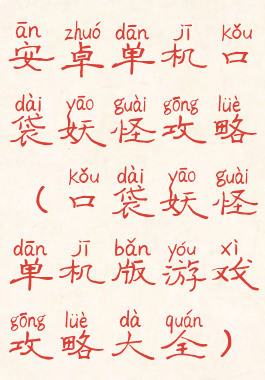 ān zhuó dān jī kǒu
安卓单机口
dài yāo guài gōng lüè
袋妖怪攻略
kǒu dài yāo guài
(口袋妖怪
dān jī bǎn yóu xì
单机版游戏
gōng lüè dà quán
攻略大全)